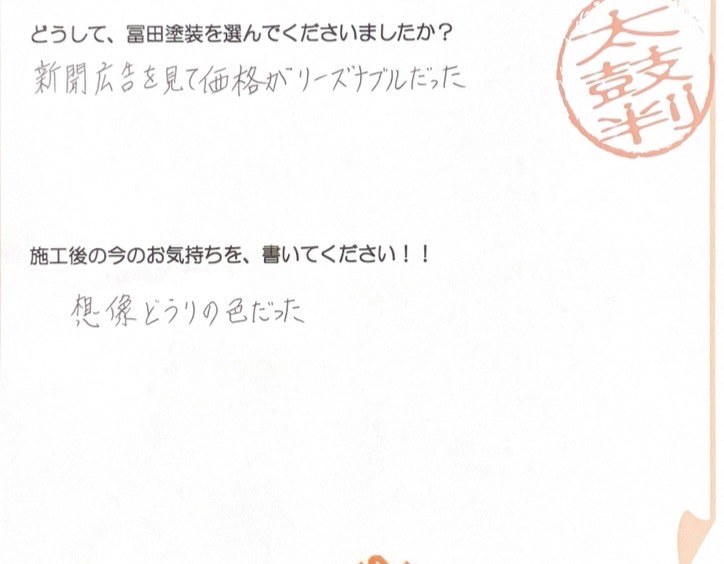 どうして、冨田塗装を選んでくださいましたか？
新聞広告を見て価格がリーズナブルだった
太鼓判
施工後の今のお気持ちを、書いてください！！
想像どうりの色だった